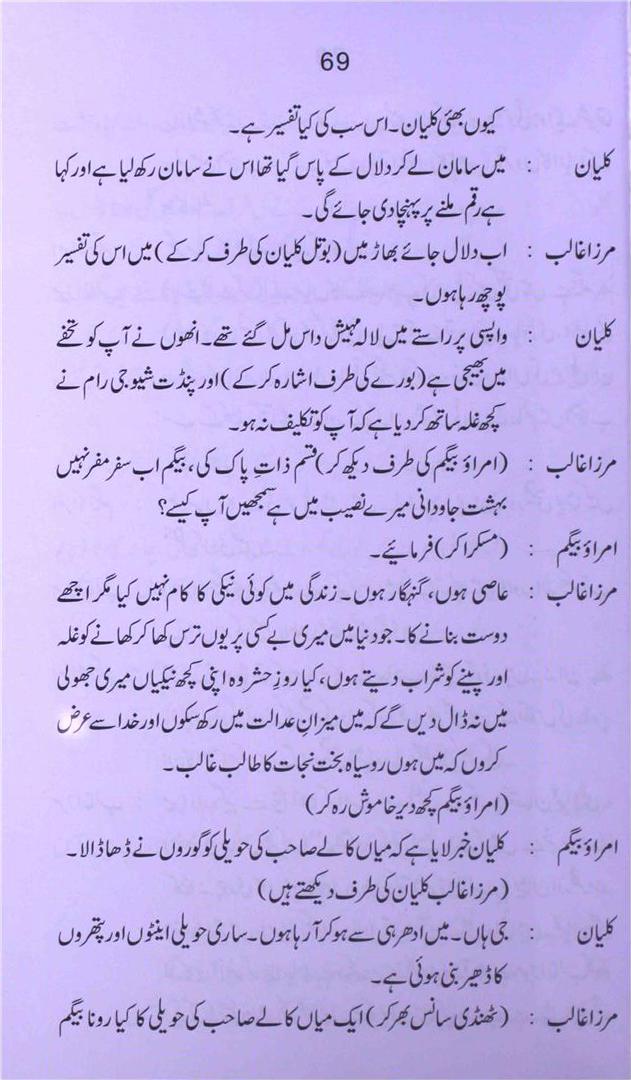 69
کیوں بھئی کلیان۔ اس سب کی کیا تفسیر ہے۔
کلیان : میں سامان لے کر دلال کے پاس گیا تھا اس نے سامان رکھ لیا ہے اور کہا
ہے رقم ملنے پر پہنچا دی جائے گی۔
مرزا غالب : اب دلال جائے بھاڑ میں (بوتل کلیان کی طرف کر کے) میں اس کی تفسیر
پوچھ رہا ہوں۔
کلیان : واپسی پر راستے میں لالہ مہیش داس مل گئے تھے۔ انھوں نے آپ کو تحفے
میں بھیجی ہے (بورے کی طرف اشارہ کر کے) اور پنڈت شیوجی رام نے
کچھ غلہ ساتھ کر دیا ہے کہ آپ کو تکلیف نہ ہو۔
مرزا غالب : (امراؤ بیگم کی طرف دیکھ کر) قسم ذاتِ پاک کی، بیگم اب سفر مفر نہیں
بہشت جاودانی میرے نصیب میں ہے سمجھیں آپ کیسے؟
امراؤ بیگم : (مسکرا کر) فرمائیے۔
مرزا غالب : عاصی ہوں، گنہگار ہوں۔ زندگی میں کوئی نیکی کا کام نہیں کیا مگر اچھے
دوست بنانے کا۔ جو دنیا میں میری بے کسی پر یوں ترس کھا کر کھانے کو غلہ
اور پینے کو شراب دیتے ہوں، کیا روزِ حشر وہ اپنی کچھ نیکیاں میری جھولی
میں نہ ڈال دیں گے کہ میں میزانِ عدالت میں رکھ سکوں اور خدا سے عرض
کروں کہ میں ہوں روسیاہ بخت نجات کا طالب غالب۔
(امراؤ بیگم کچھ دیر خاموش رہ کر)
امراؤ بیگم : کلیان خبر لایا ہے کہ میاں کالے صاحب کی حویلی کو گوروں نے ڈھا ڈالا۔
(مرزا غالب کلیان کی طرف دیکھتے ہیں)
کلیان : جی ہاں۔ میں ادھر ہی سے ہو کر آ رہا ہوں۔ ساری حویلی اینٹوں اور پتھروں
کا ڈھیر بنی ہوئی ہے۔
مرزا غالب : (ٹھنڈی سانس بھر کر) ایک میاں کالے صاحب کی حویلی کا کیا رونا بیگم